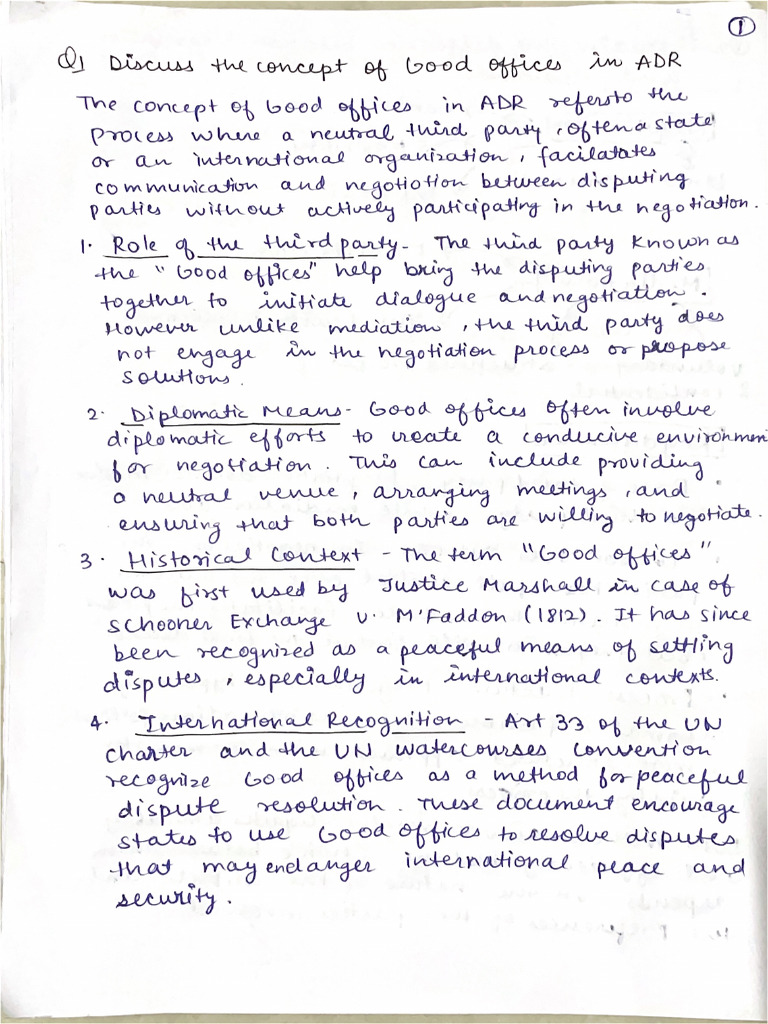 1
Q1 Discuss the concept of Good offices in ADR
The concept of Good offices in ADR refers to the
process where a neutral third party, often a state
or an international organization, facilatates
communication and negotiation between disputing
parties without actively participating in the negotiation.
1. Role of the third party - The third party known as
the "Good offices" help bring the disputing parties
together to initiate dialogue and negotiation.
However unlike mediation, the third party does
not engage in the negotiation process or propose
solutions.
2. Diplomatic Means - Good offices often involve
diplomatic efforts to create a conducive environmen
for negotiation. This can include providing
a neutral venue, arranging meetings, and
ensuring that both parties are willing to negotiate.
3. Historical Context - The term "Good offices"
was first used by Justice Marshall in case of
schooner Exchange v. M'Faddon (1812). It has since
been recognized as a peaceful means of settling
disputes, especially in international contexts.
4. International Recognition - Art 33 of the UN
charter and the UN watercourses convention
recognize Good offices as a method for peaceful
dispute resolution. These document encourage
states to use Good offices to resolve disputes
that may endanger international peace and
security.